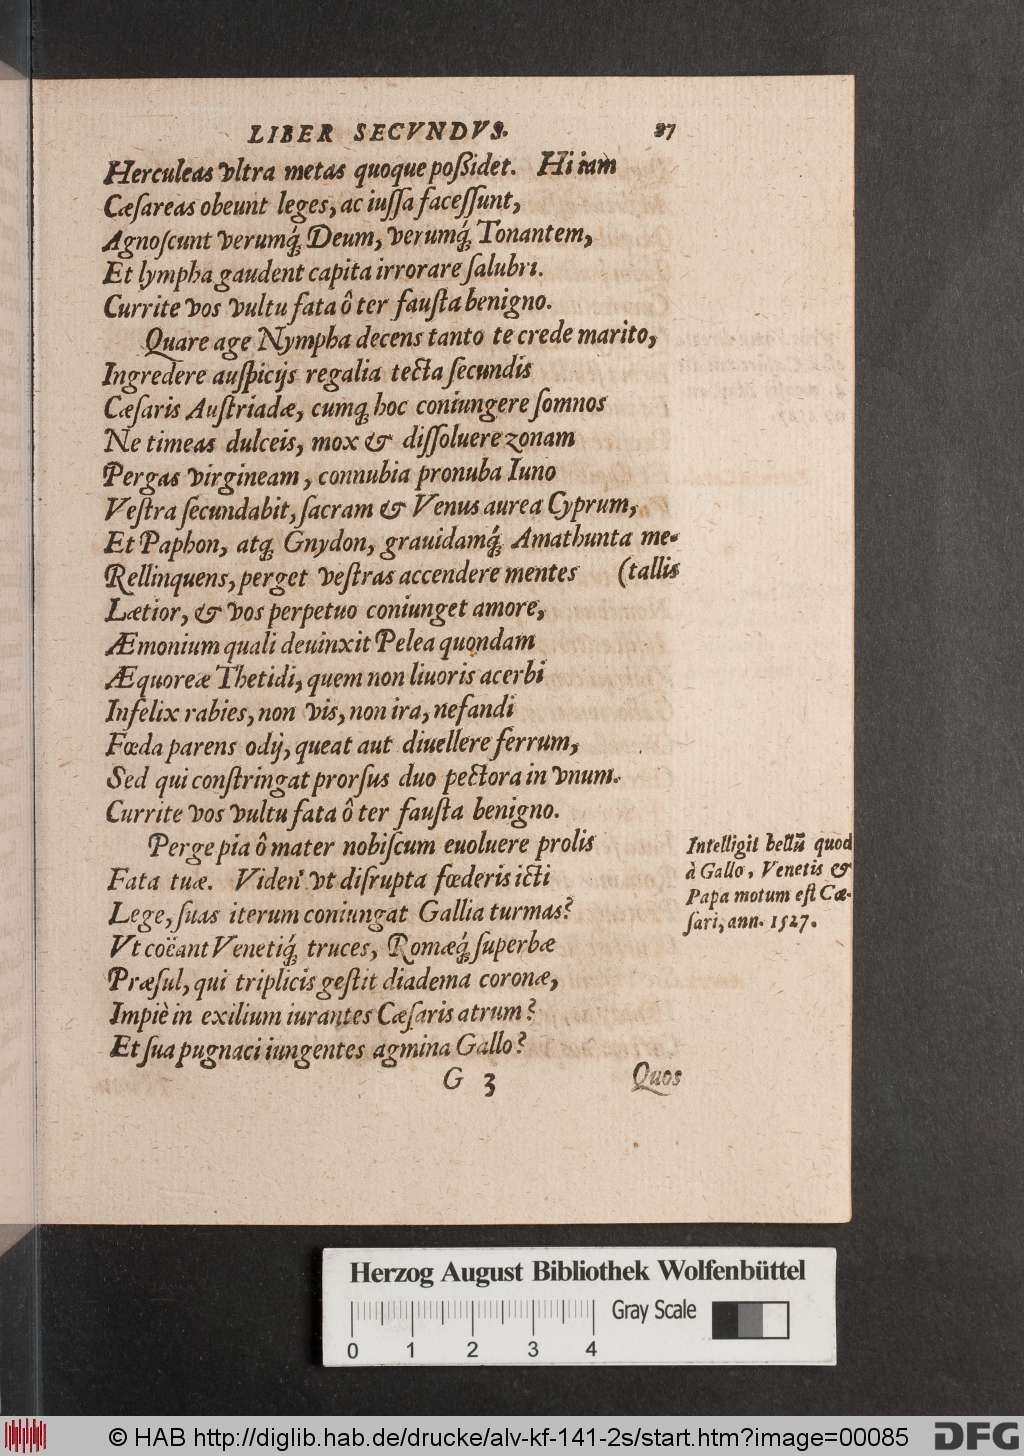 LIBER SECVNDVS. 37
Herculeas vltra metas quoque poßidet. Hi iam
Cæſareas obeunt leges, ac iuſſa faceſſunt,
Agnoſcunt verumq́; Deum, verumq́; Tonantem,
Et lympha gaudent capita irrorare ſalubri.
Currite vos vultu fata ô ter fauſta benigno.
Quare age Nympha decens tanto te crede marito,
Ingredere auſpicijs regalia tecta ſecundis
Cæſaris Auſtriadæ, cumq; hoc coniungere ſomnos
Ne timeas dulceis, mox & diſſoluere zonam
Pergas virgineam, connubia pronuba Iuno
Veſtra ſecundabit, ſacram & Venus aurea Cyprum,
Et Paphon, atq; Gnydon, grauidamq́; Amathunta me-
Rellinquens, perget veſtras accendere mentes (tallis
Lætior, & vos perpetuo coniunget amore,
Æmonium quali deuinxit Pelea quondam
Æquoreæ Thetidi, quem non liuoris acerbi
Infelix rabies, non vis, non ira, nefandi
Fœda parens odij, queat aut diuellere ferrum,
Sed qui conſtringat prorſus duo pectora in vnum.
Currite vos vultu fata ô ter fauſta benigno.
Perge pia ô mater nobiſcum euoluere prolis
Fata tuæ. Viden' vt diſrupta fœderis icti
Lege, ſuas iterum coniungat Gallia turmas?
Vt coëant Venetiq́; truces, Romæq́; ſuperbæ
Præſul, qui triplicis geſtit diadema coronæ,
Impiè in exilium iurantes Cæſaris atrum?
Et ſua pugnaci iungentes agmina Gallo?
Intelligit bellū quod
à Gallo, Venetis &
Papa motum eſt Cæ-
ſari, ann. 1527.
G 3 Quos
Herzog August Bibliothek Wolfenbüttel
Gray Scale
0 1 2 3 4
© HAB http://diglib.hab.de/drucke/alv-kf-141-2s/start.htm?image=00085
DFG